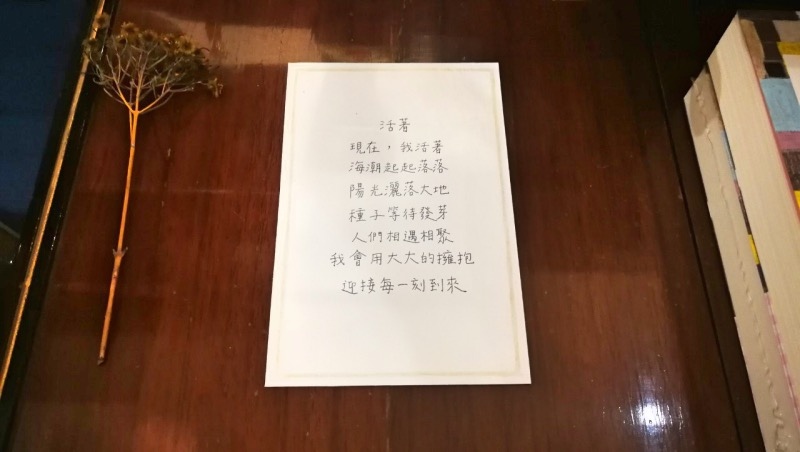 活著
現在，我活著
海潮起起落落
陽光灑落大地
種子等待發芽
人們相遇相聚
我會用大大的擁抱
迎接每一刻到來